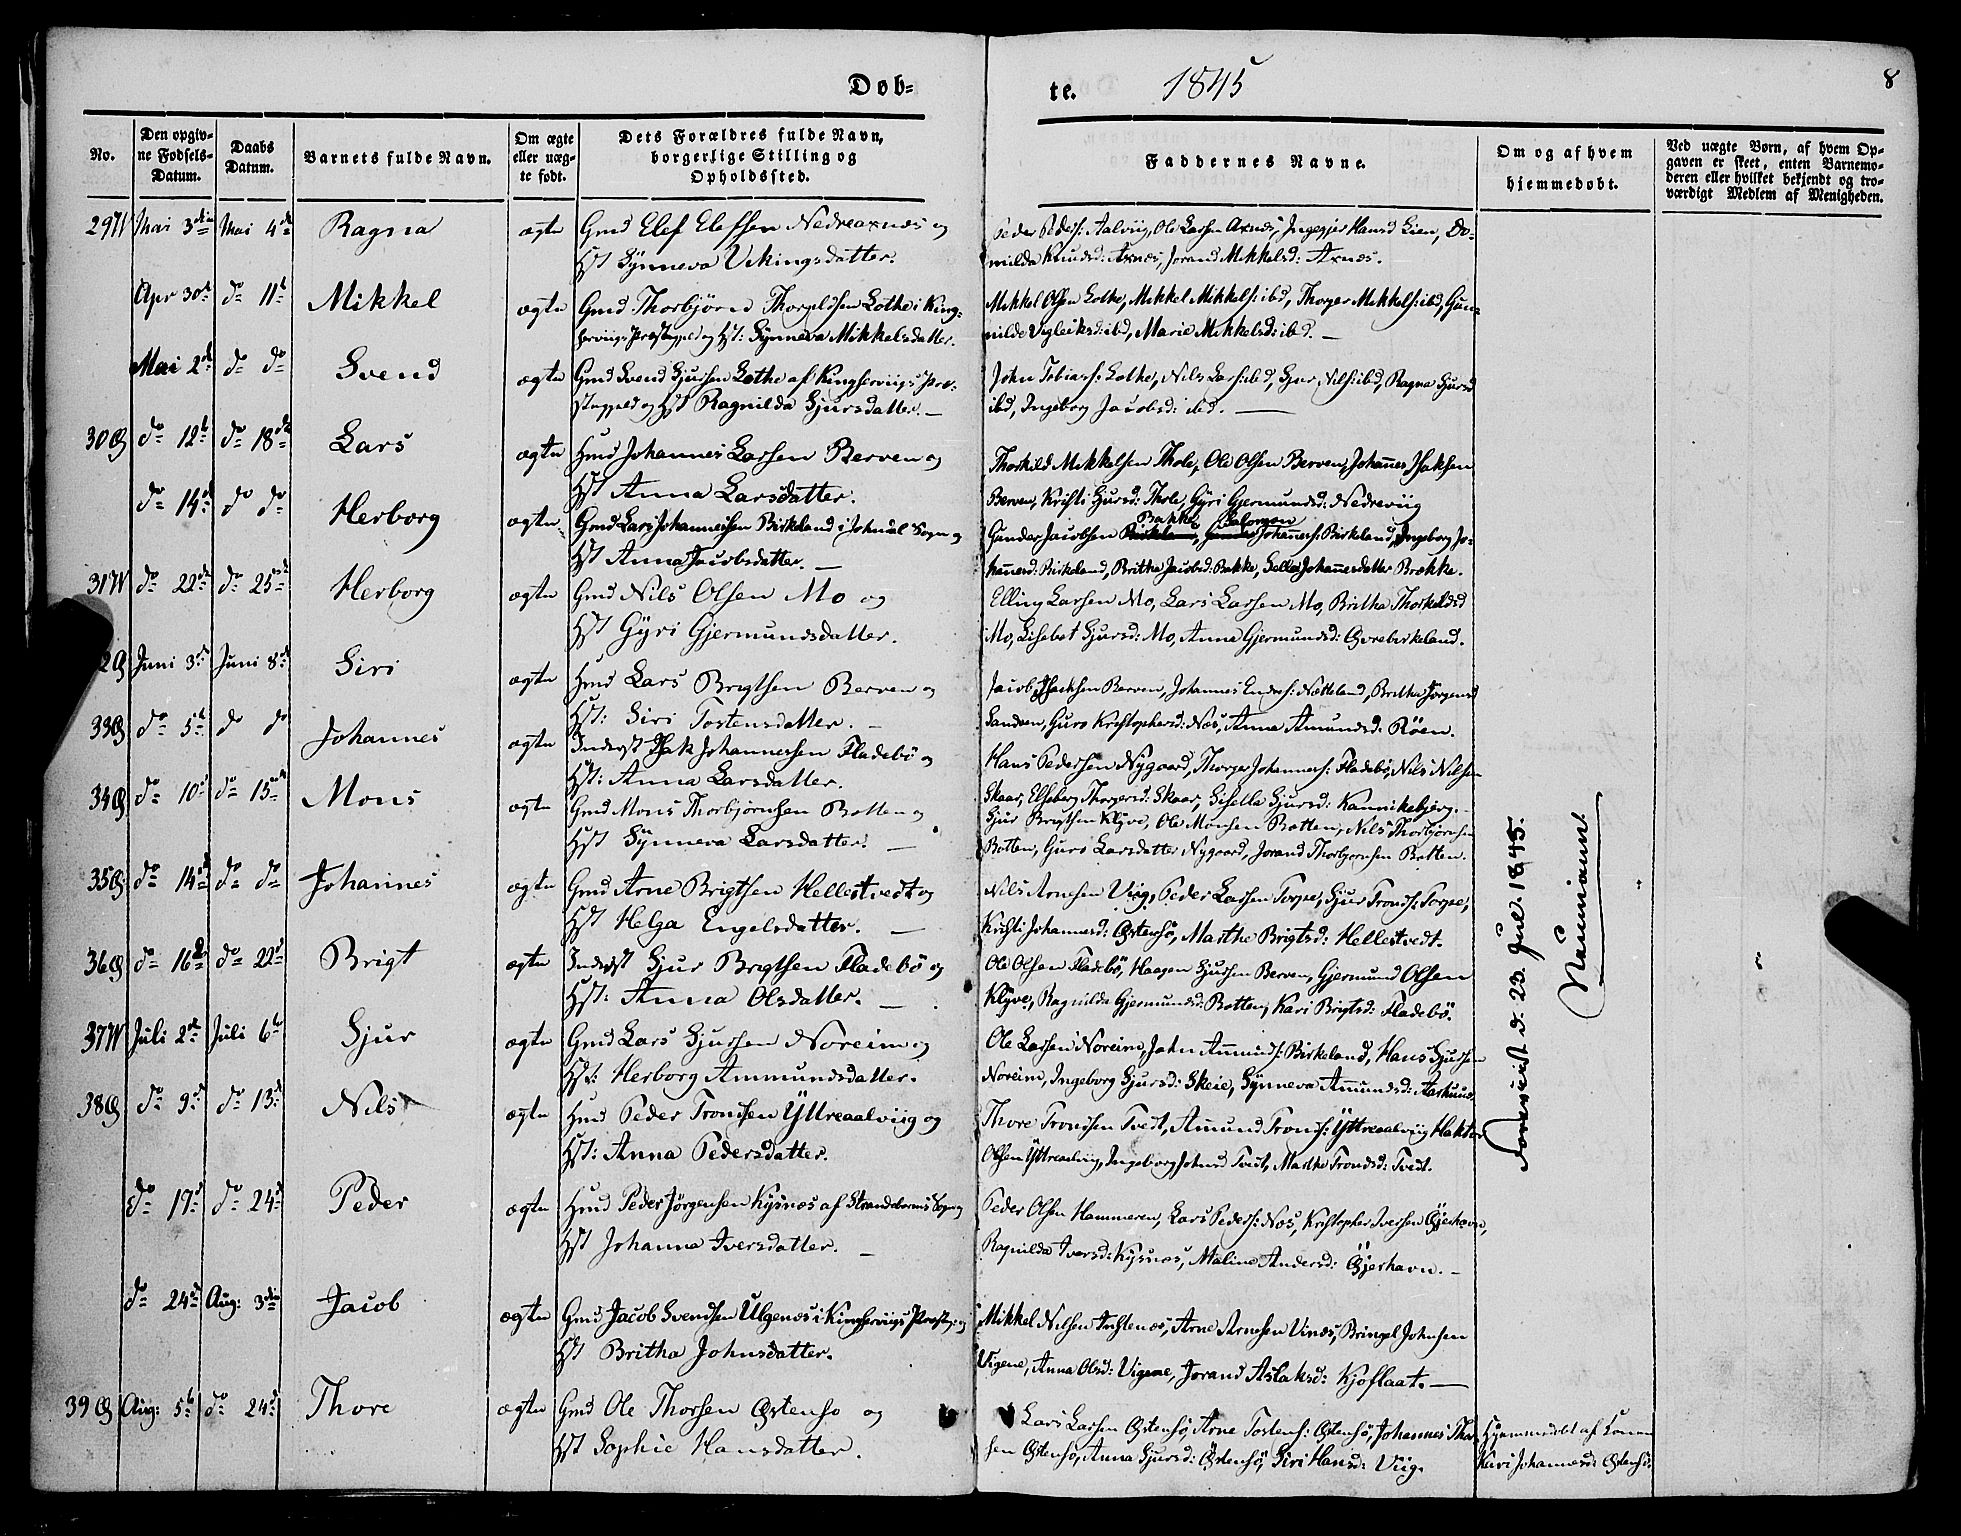 Døb=
te.
1845
8
No.
Den opgiv=
ne Fødsels=
Datum.
Daabs
Datum.
Barnets fulde Navn.
Om ægte
eller uæg=
te født.
Dets Forældres fulde Navn,
borgerlige Stilling og
Opholdssted.
Faddernes Navne.
Om og af hvem
hjemmedøbt.
Ved uægte Børn, af hvem Op=
gaven er skeet, enten Barnemo=
deren eller hvilket bekjendt og tro=
værdigt Medlem af Menigheden.
29 Mai 3die Mai 4de Ragna ægte Gmd Elef Elefsen Nedreaxnes og
Hst Synneva Vikingsdatter.
Peder Peders: Aalviig, Ole Larsen Axnes, Ingegjer Hansd Lien, Do=
milda Knudsd: Axnes, Jorand Mikkelsd: Axnes.
Apr 30te do 11te Mikkel ægte Gmd Thorbjørn Thorgilsen Lothe i King=
serviigs Præstegjeld og Hst: Synneva Mikkelsdatter.
Mikkel Olsen Lothe, Mikkel Mikkels: ibd, Thorger Mikkels: ibd, Gun=
nilde Vigleiksd: ibd, Marie Mikkelsd: ibd. —
Mai 2den do do Svend ægte Gmd Svend Sjursen Lothe af Kingserviigs Præ=
stegjeld og Hst Ragnilda Sjursdatter. —
John Tobias: Lothe, Nils Lars: ibd, Sjur Nils: ibd, Ragna Sjursd
ibd, Ingeborg Jacobsd: ibd. —
30 Ø do 12te do 18de Lars ægte Hmd Johannes Larsen Berven og
Hst Anna Larsdatter.
Thorkild Mikkelsen Thole, Ole Olsen Berven, Johannes Isaksen
Berven, Kristi Sjursd: Thole, Gyri Gjermundsd: Nedreviig
do 14de do do Herborg ægte Gmd Lars Johannessen Birkeland i Johndal Sogn og
Hst Anna Jacobsdatter. —
Bakke, Salomon
Gunder Jacobsen Birkeland, Gunder Johannes: Birkeland, Ingeborg Jo=
hannesd: Birkeland, Britha Jacobsd: Bakke, Sella Johannesdatter Brække.
31 do 22de do 25de Herborg ægte Gmd Nils Olsen Mo og
Hst Gyri Gjermundsdatter.
Elling Larsen Mo, Lars Larsen Mo, Britha Thorkildsd
Mo, Lisebet Sjursd: Mo, Anna Gjermundsd: Øvrebirkeland.
2 Ø Juni 3die Juni 8de Siri ægte Hmd Lars Brigtsen Berven og
Hst: Siri Tostensdatter. —
Jacob Isaksen Berven, Johannes Endres: Netteland, Britha Jørgensd
Sandven, Guro Kristophersd: Næs, Anna Amundsd: Røen.
33 Ø do 5te do do Johannes ægte Inderst Isak Johannessen Fladebø og
Hst: Anna Larsdatter.
Hans Pedersen Nygaard, Thorger Johannes: Fladebø, Nils Nilsen
Skaar, Elseberg Thorgersd: Skaar, Sisella Sjursd: Kannikebjerg. —
34 Ø do 10de do 15de Mons ægte Gmd Mons Thorbjørnsen Botten og
Hst Synneva Larsdatter. —
Sjur Brigtsen Klyve, Ole Monsen Botten, Nils Thorbjørnsen
Botten, Guro Larsdatter Nygaard, Jorand Thorbjørnsen Botten.
35 Ø do 14de do do Johannes ægte Gmd Arne Brigtsen Hellestvedt og
Hst Helga Engelsdatter. —
Nils Arnesen Viig, Peder Larsen Torpe, Sjur Tronds: Torpe,
Kristi Johannesd: Østensø, Marthe Brigtsd: Hellestvedt.
36 Ø do 16de do 22de Brigt ægte Inderst Sjur Brigtsen Fladebø og
Hst: Anna Olsdatter. —
Ole Olsen Fladebø, Haagen Sjursen Berven, Gjermund Olsen
Klyve, Ragnilda Gjermundsd: Botten, Kari Brigtsd: Fladebø.
37 Juli 2den Juli 6te Sjur ægte Gmd Lars Sjursen Noreim og
Hst: Herborg Ammundsdatter.
Ole Larsen Noreim, John Amunds: Birkeland, Hans Sjursen
Noreim, Ingeborg Sjursd: Skeie, Synneva Amundsd: Aarhuus.
38 Ø do 9de do 13de Nils ægte Hmd Peder Trondsen Yttreaalviig og
Hst: Anna Pedersdatter.
Thore Trondsen Tvedt, Amund Tronds: Yttreaalviig Haktor
Olsen Yttreaalviig, Ingeborg Johnsd Tvedt, Marthe Trondsd: Tvedt.
do 17de do 24de Peder ægte Hmd Peder Jørgensen Kysnæs af Strandebarms Sogn og
Hst Johanna Iversdatter. —
Peder Olsen Hammeren, Lars Peders: Næs, Kristopher Iversen Øjerhavn,
Ragnilda Iversd: Kysnæs, Maline Andersd: Øjerhavn. —
do 24de Aug: 3die Jacob ægte Gmd Jacob Svendsen Ulgenæs i Kingserviigs Præstg: og
Hst Britha Johnsdatter.
Mikkel Nilsen Tristenæs, Arne Arnesen Vines, Bringel Johnsen
Vigene, Anna Olsd: Vigene, Jorand Aslaksd: Kjoflaat. —
39 Ø Aug: 5te do 24de Thore ægte Gmd Ole Thorsen Østensø og
Hst Sophie Hansdatter.
Lars Larsen Østensø, Arne Tostens: Østensø, Johannes Thor=
sen Østensø, Anna Sjursd: Østensø, Siri Hansd: Viig.
Hjemmedøbt af Konen
Kari Johannesd: Østensø
d. 23. Jul. 1845.
Neumann.